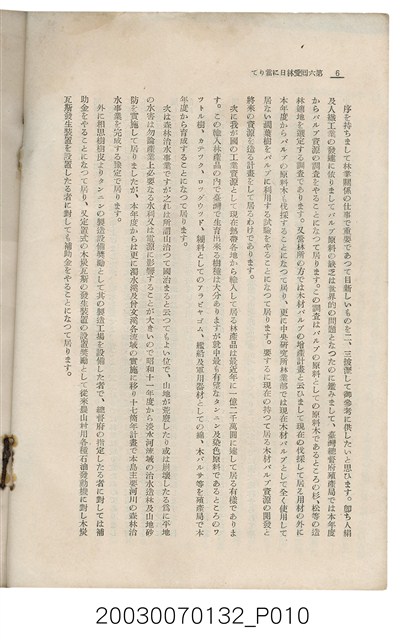 第六回愛林日に當りて
6
序を持ちまして林業關係の仕事で重要であつて目新しいものを二、三披露して御參考に供したいと思ひます。卽ち人絹
及人纎工業の發達に依りましてパルプ原料の缺乏は世界的の問題となつたのに鑑みまして、臺灣總督府殖產局では本年度
からパルプ資源の調査をやることになつて居ります。この調査はパルプの原料としての原料木であるところの杉・松等の造
林適地を選定する調査であります。又營林所の方では木材パルプの增產計畫と云ひまして現在の伐採して居る用材の外に
本年度からパルプの原料木も伐採することになつて居り、更に中央研究所林業部では現在木材パルプとして全く使用して
居ない濶葉樹をパルプに利用する試驗をやることになつて居ります。要するに現在の持つて居る木材パルプ資源の開發と
將來の資源を造る計畫をして居るわけであります。
次に我が國の工業資源として現在熱帶各地から輸入して居る林產品は最近年に一億二千萬圓に達して居る有樣でありま
す。この輸入林產品の內で臺灣で生育出來る樹種は大分ありますが就中最も有望なタンニン及染色原料であるところのワ
ットル樹、カテウク、ロツグウツド、糊料としてのアラビヤゴム、艦船及軍用器材としての　　、木バルサ等を殖產局で本
年度から育成することになつて居ります。
次は森林治水事業ですが之れは所謂山治つて國治まると云つてもよい位で、山地が荒廢したり或は崩壞したる爲に平地
の水害は勿論產業上必要なる水利又は電源に影響することが大きいので昭和十一年度から淡水河流域の治水造林及山地砂
防を實施して居りましたが、本年度からは更に濁水溪及曾文溪各流域の實施に移り十七箇年計畫で本島主要河川の森林治
水事業を完成する豫定で居ります。
外に相思樹樹皮よりタンニンの製造設備奬勵として其の製造工場を設備した者で、總督府の指定したる者に對しては補
助金をやることになつて居り、又定置式の木炭瓦斯の發生裝置の設置奬勵として從來農山村用各種石油發動機に對し木炭
瓦斯發生裝置を設置したる者に對しても補助金をやることになつて居ります。
20030070132_P010